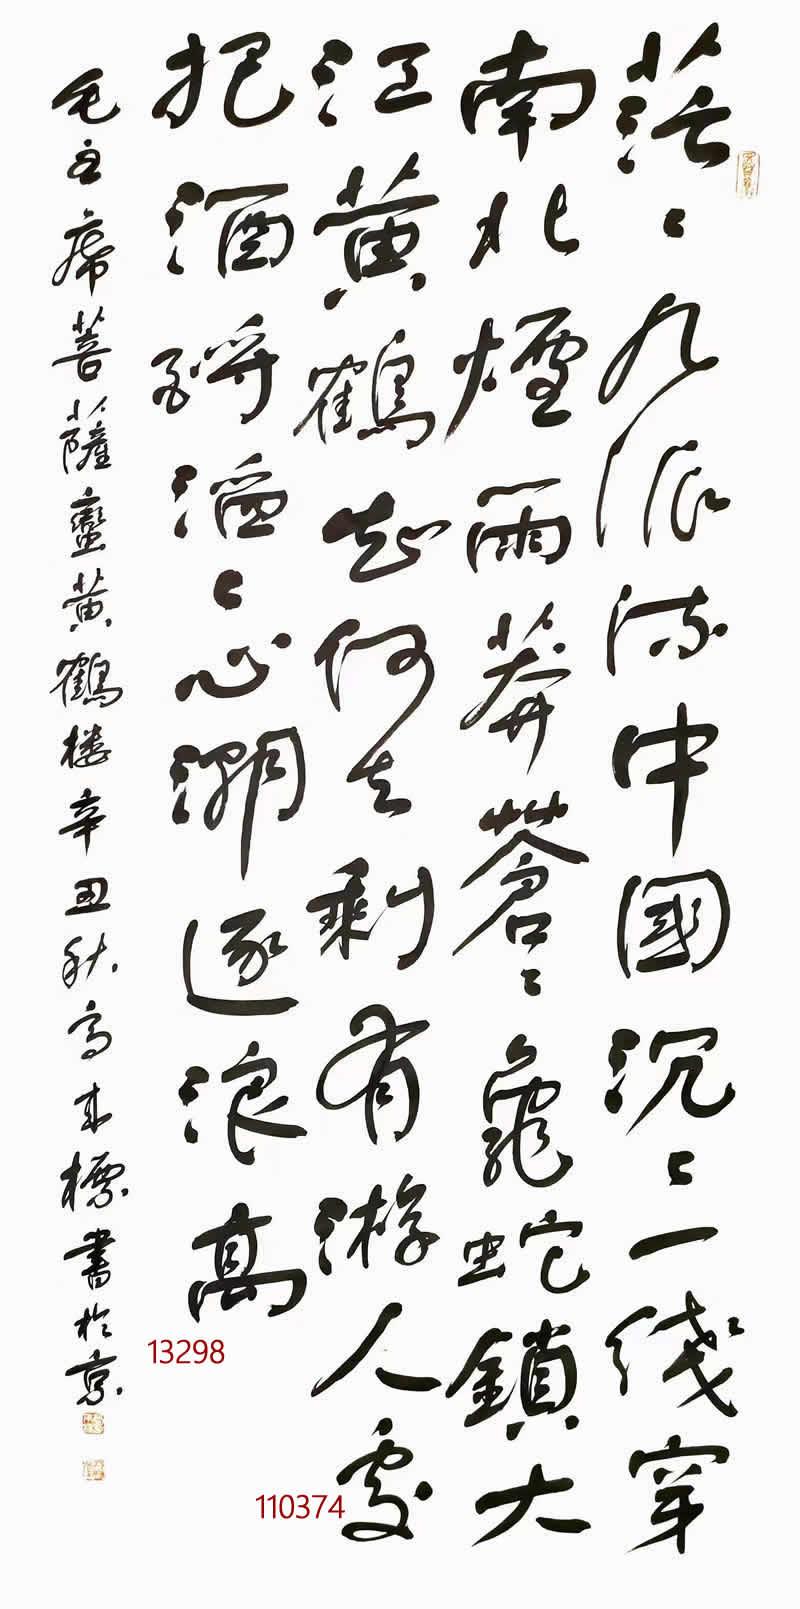 茫〻九派流中國沉〻一綫穿
南北煙雨莽蒼〻龜蛇鎖大
江黄鶴知何去剩有游人處
把酒酹滔〻心潮逐浪高
毛主席菩薩蠻黄鶴楼辛丑秋高標書於京
13298
110374